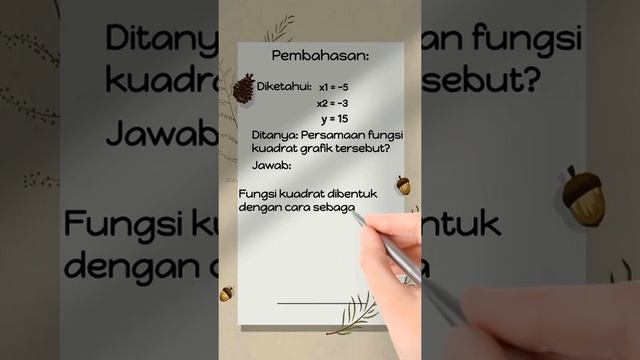 Pembahasan:
Diketahui: x1 = -5
x2 = -3
y = 15
Ditanya: Persamaan fungsi
kuadrat grafik tersebut?
Jawab:
Fungsi kuadrat dibentuk
dengan cara sebaga